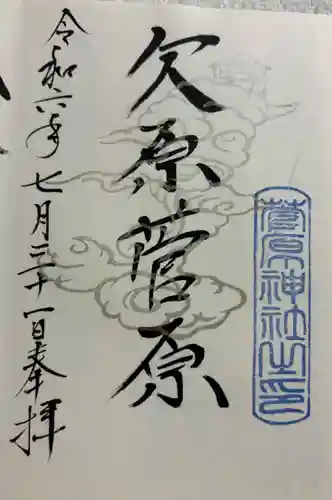 菅原神社之印
欠原菅原
令和六年七月二十一日奉拝